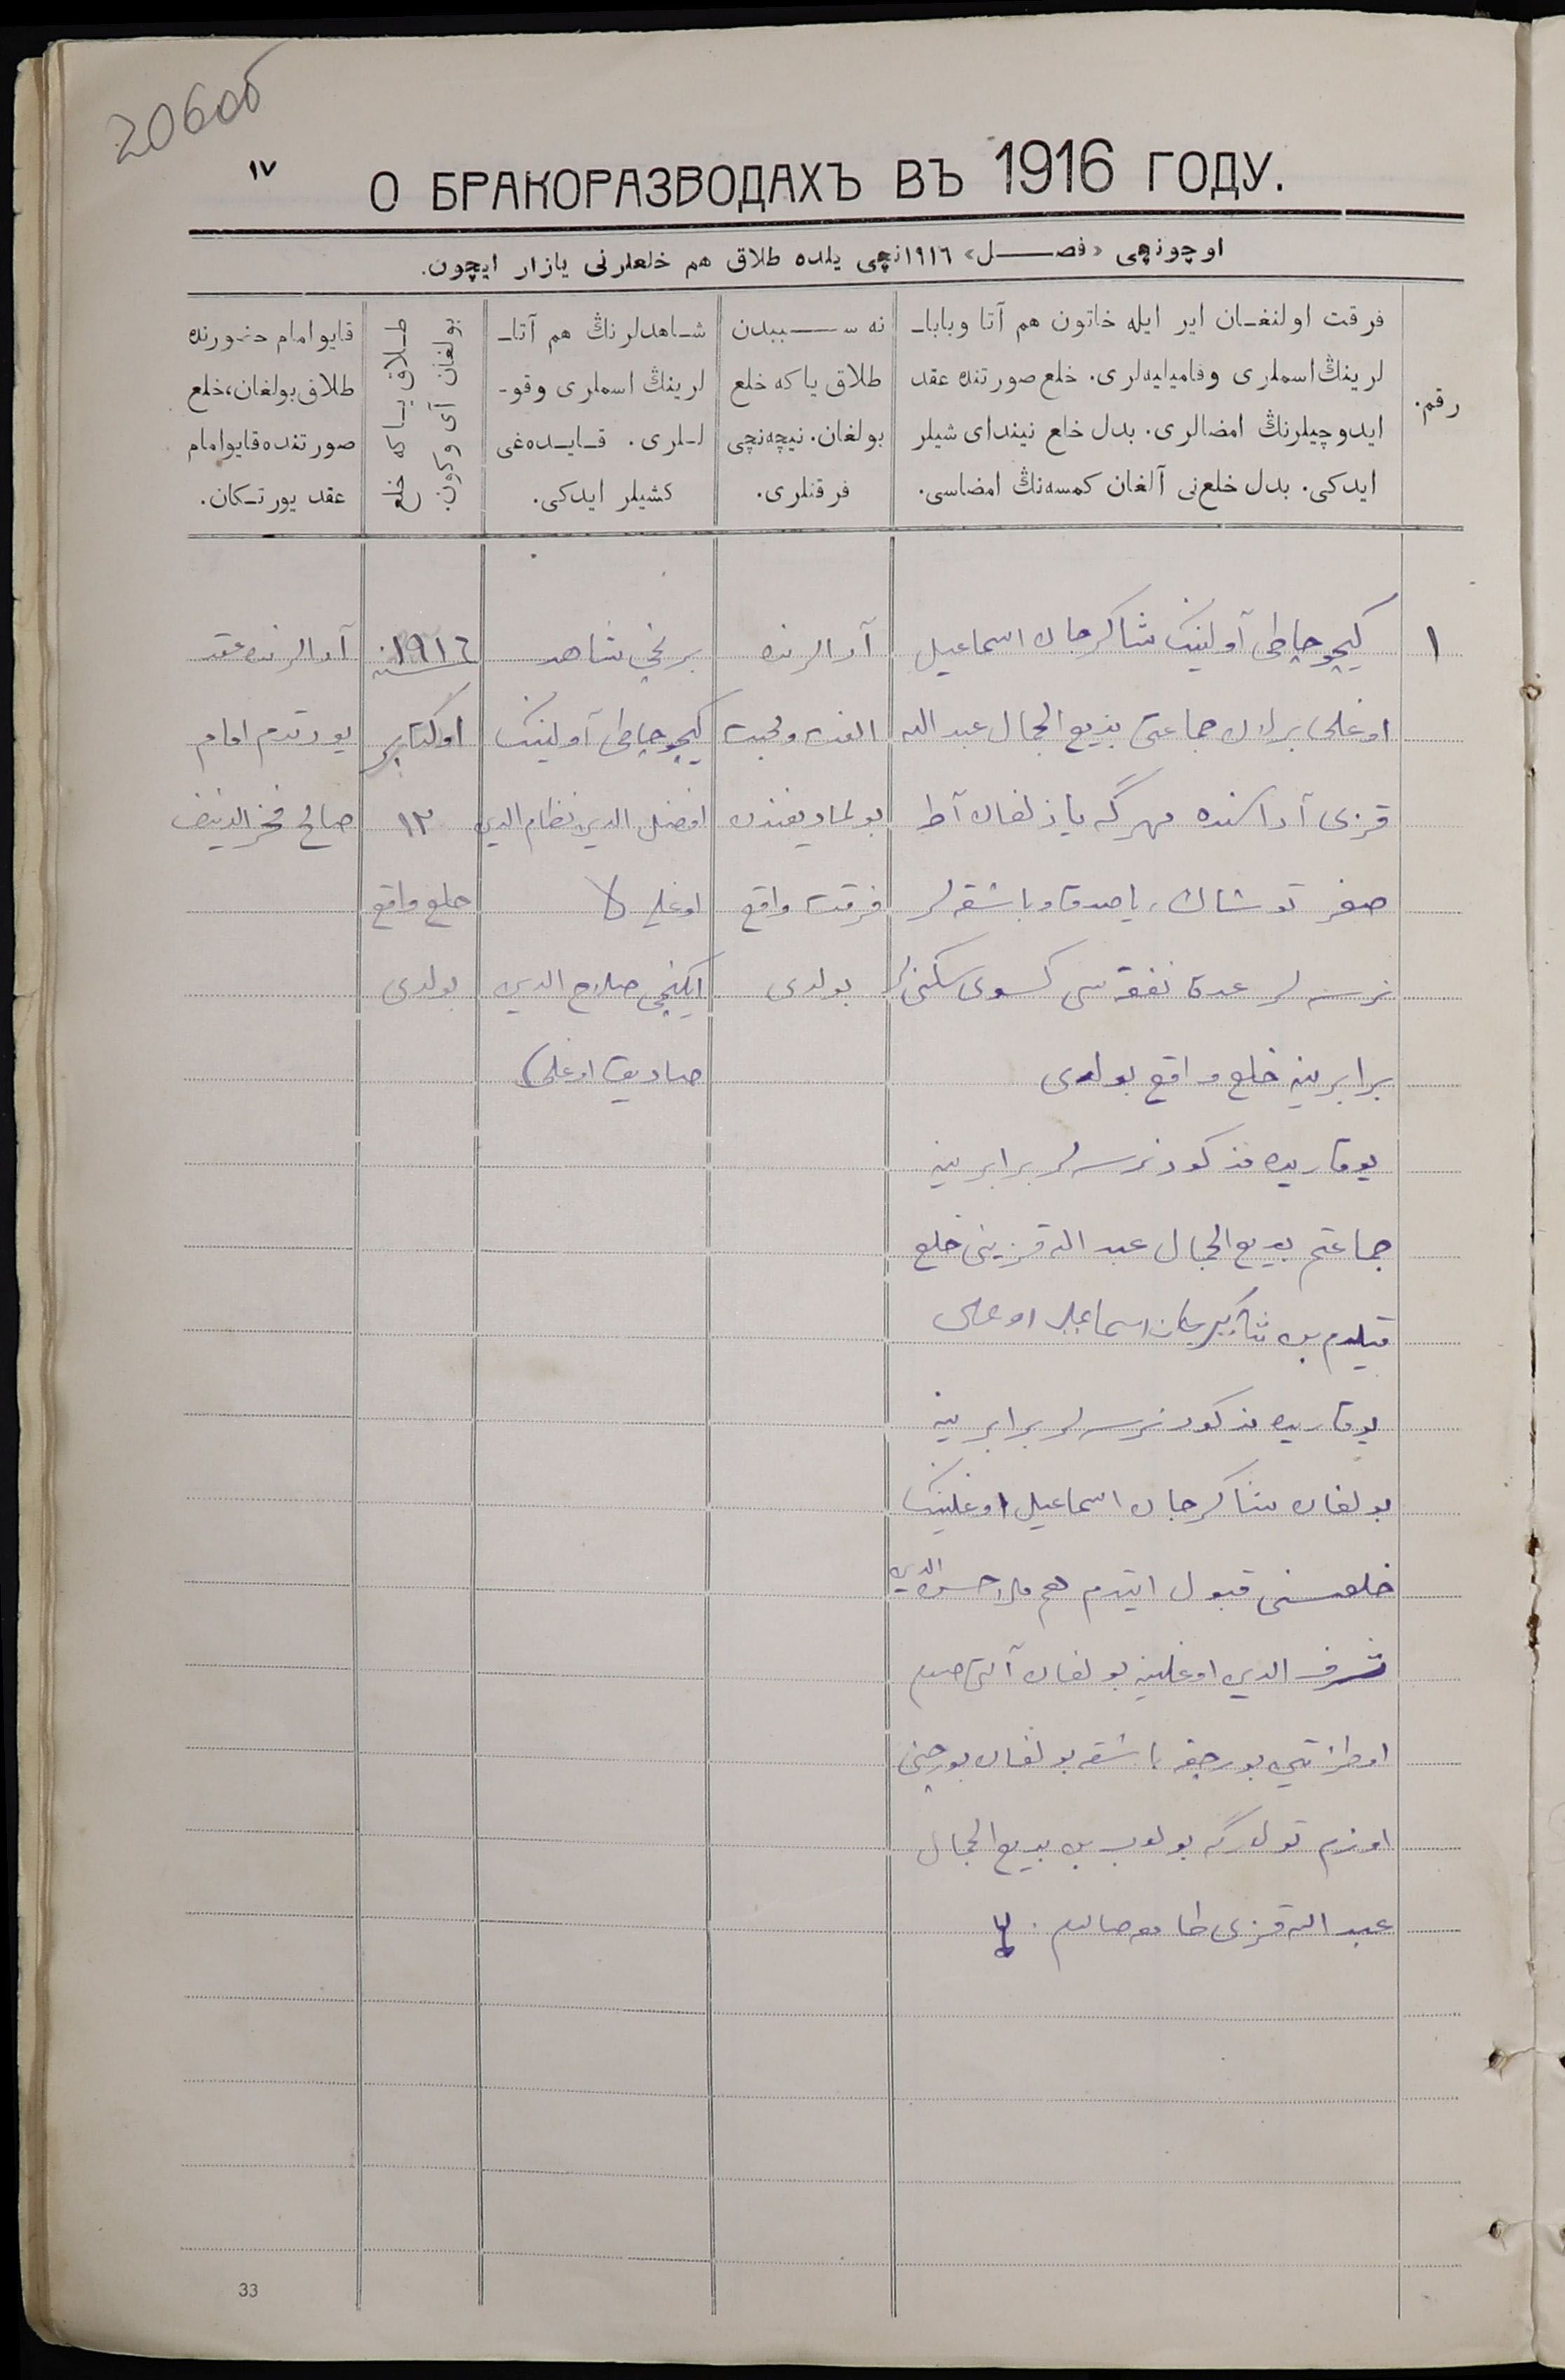 206об
١٧
О БРАКОРАЗВОДАХЪ ВЪ 1916 ГОДУ.
اوچونچی «فصـــــل» ١٩١٦نچی یلده طلاق هم خلعلرنی یازار ایچون.
رقم.
فرقت اولنغـان ایر ایله خاتون هم آتا وبابا۔
لرینڭ اسملری وفامیلیه‌لری. خلع صورتنده عقد
ایدوچیلرنڭ امضالری. بدل خلع نیندای شیلر
ایدکی. بدل خلع‌نی آلغان کمسه‌نڭ امضاسی.
نه ســـــببدن
طلاق یاکه خلع
بولغان. نیچه‌نچی
فرقتلری.
شـاهدلرنڭ هم آتا۔
لرینڭ اسملری وقو۔
لـلری. قـایـده‌غی
کشیلر ایدکی.
طـلاق یـاکه خلع
بولغان آی وکون
قایو امام حضورنده
طلاق بولغان، خلع
صورتنده قایو امام
عقد یورتـکان.
١
کیچو چاطی آولینک شاکرجان اسماعیل
اوغلی برلان جماعتی بدیع الجمال عبد الله
قزی آراسنده مهرگه یازلغان آط
صغر توشاك، یاصدق وباشقه لر
نرسه لر عدة نفقه سی کسوی سکنی لر
برابرینه خلع واقع بولدی
یوقاریده مذکور نرسه لر برابرینه
جماعتم بدیع الجمال عبد الله قزینی خلع
قیلدم بن شاکرجان اسماعیل اوغلی
یوقاریده مذکور نرسه لر برابرینه
بولغان شاکرجان اسماعیل اوغلینک
خلعسنی قبول ایتدم هم ملا حسن الدین
شرف الدین اوغلینه بولغان آلتی صوم
اوطز تین بورچقه باشقه بولغان بورچنی
اوزم تولرگه بولوب بن بدیع الجمال
عبد الله قزی طامغه صالدم.
آرالرنده
الفت ومحبت
بولماویغندن
فرقت واقع
بولدی
برنچی شاهد
کیچو چاطی آولینک
افضل الدین نظام الدین
اوغلی
ایکنچی صلاح الدین
صادیق اوغلی
١٩١٦
سنه
اوکتابر
١٣
خلع واقع
بولدی
آرالرنده عقد
یورتدم امام
صالح فخرالدینف
33